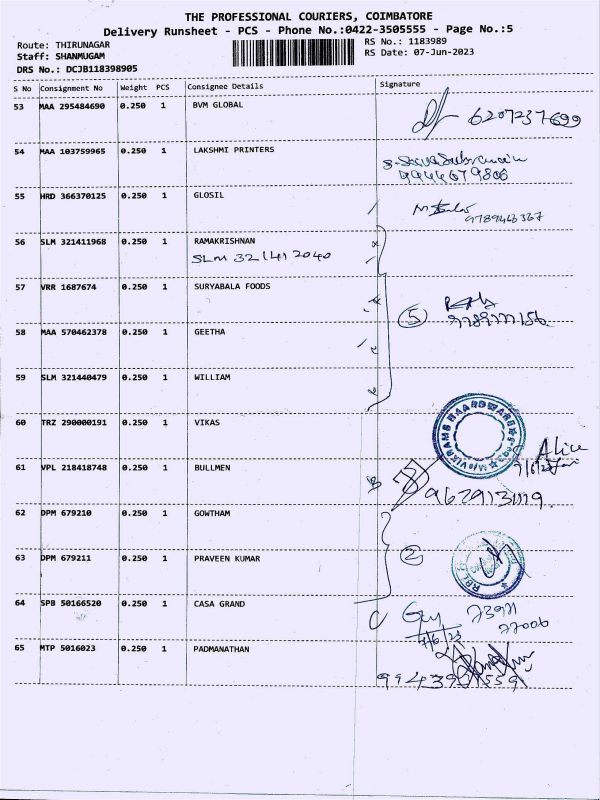 THE PROFESSIONAL COURIERS, COIMBATORE
Delivery Runsheet - PCS - Phone No.:0422-3505555 - Page No.:5
Route: THIRUNAGAR
RS No.: 1183989
Staff: SHANMUGAM
RS Date: 07-Jun-2023
DRS No.: DCJB118398905
S No Consignment No Weight PCS Consignee Details Signature
53 MAA 295484690 0.250 1 BVM GLOBAL
6207237699
54 MAA 103759965 0.250 1 LAKSHMI PRINTERS
9944679806
55 HRD 366370125 0.250 1 GLOSIL
56 SLM 321411968 0.250 1 RAMAKRISHNAN
SLM 321412040
57 VRR 1687674 0.250 1 SURYABALA FOODS
5
58 MAA 570462378 0.250 1 GEETHA
59 SLM 321440479 0.250 1 WILLIAM
60 TRZ 290000191 0.250 1 VIKAS
Alice
61 VPL 218418748 0.250 1 BULLMEN
62 DPM 679210 0.250 1 GOWTHAM
63 DPM 679211 0.250 1 PRAVEEN KUMAR
2
64 SPB 50166520 0.250 1 CASA GRAND
65 MTP 5016023 0.250 1 PADMANATHAN